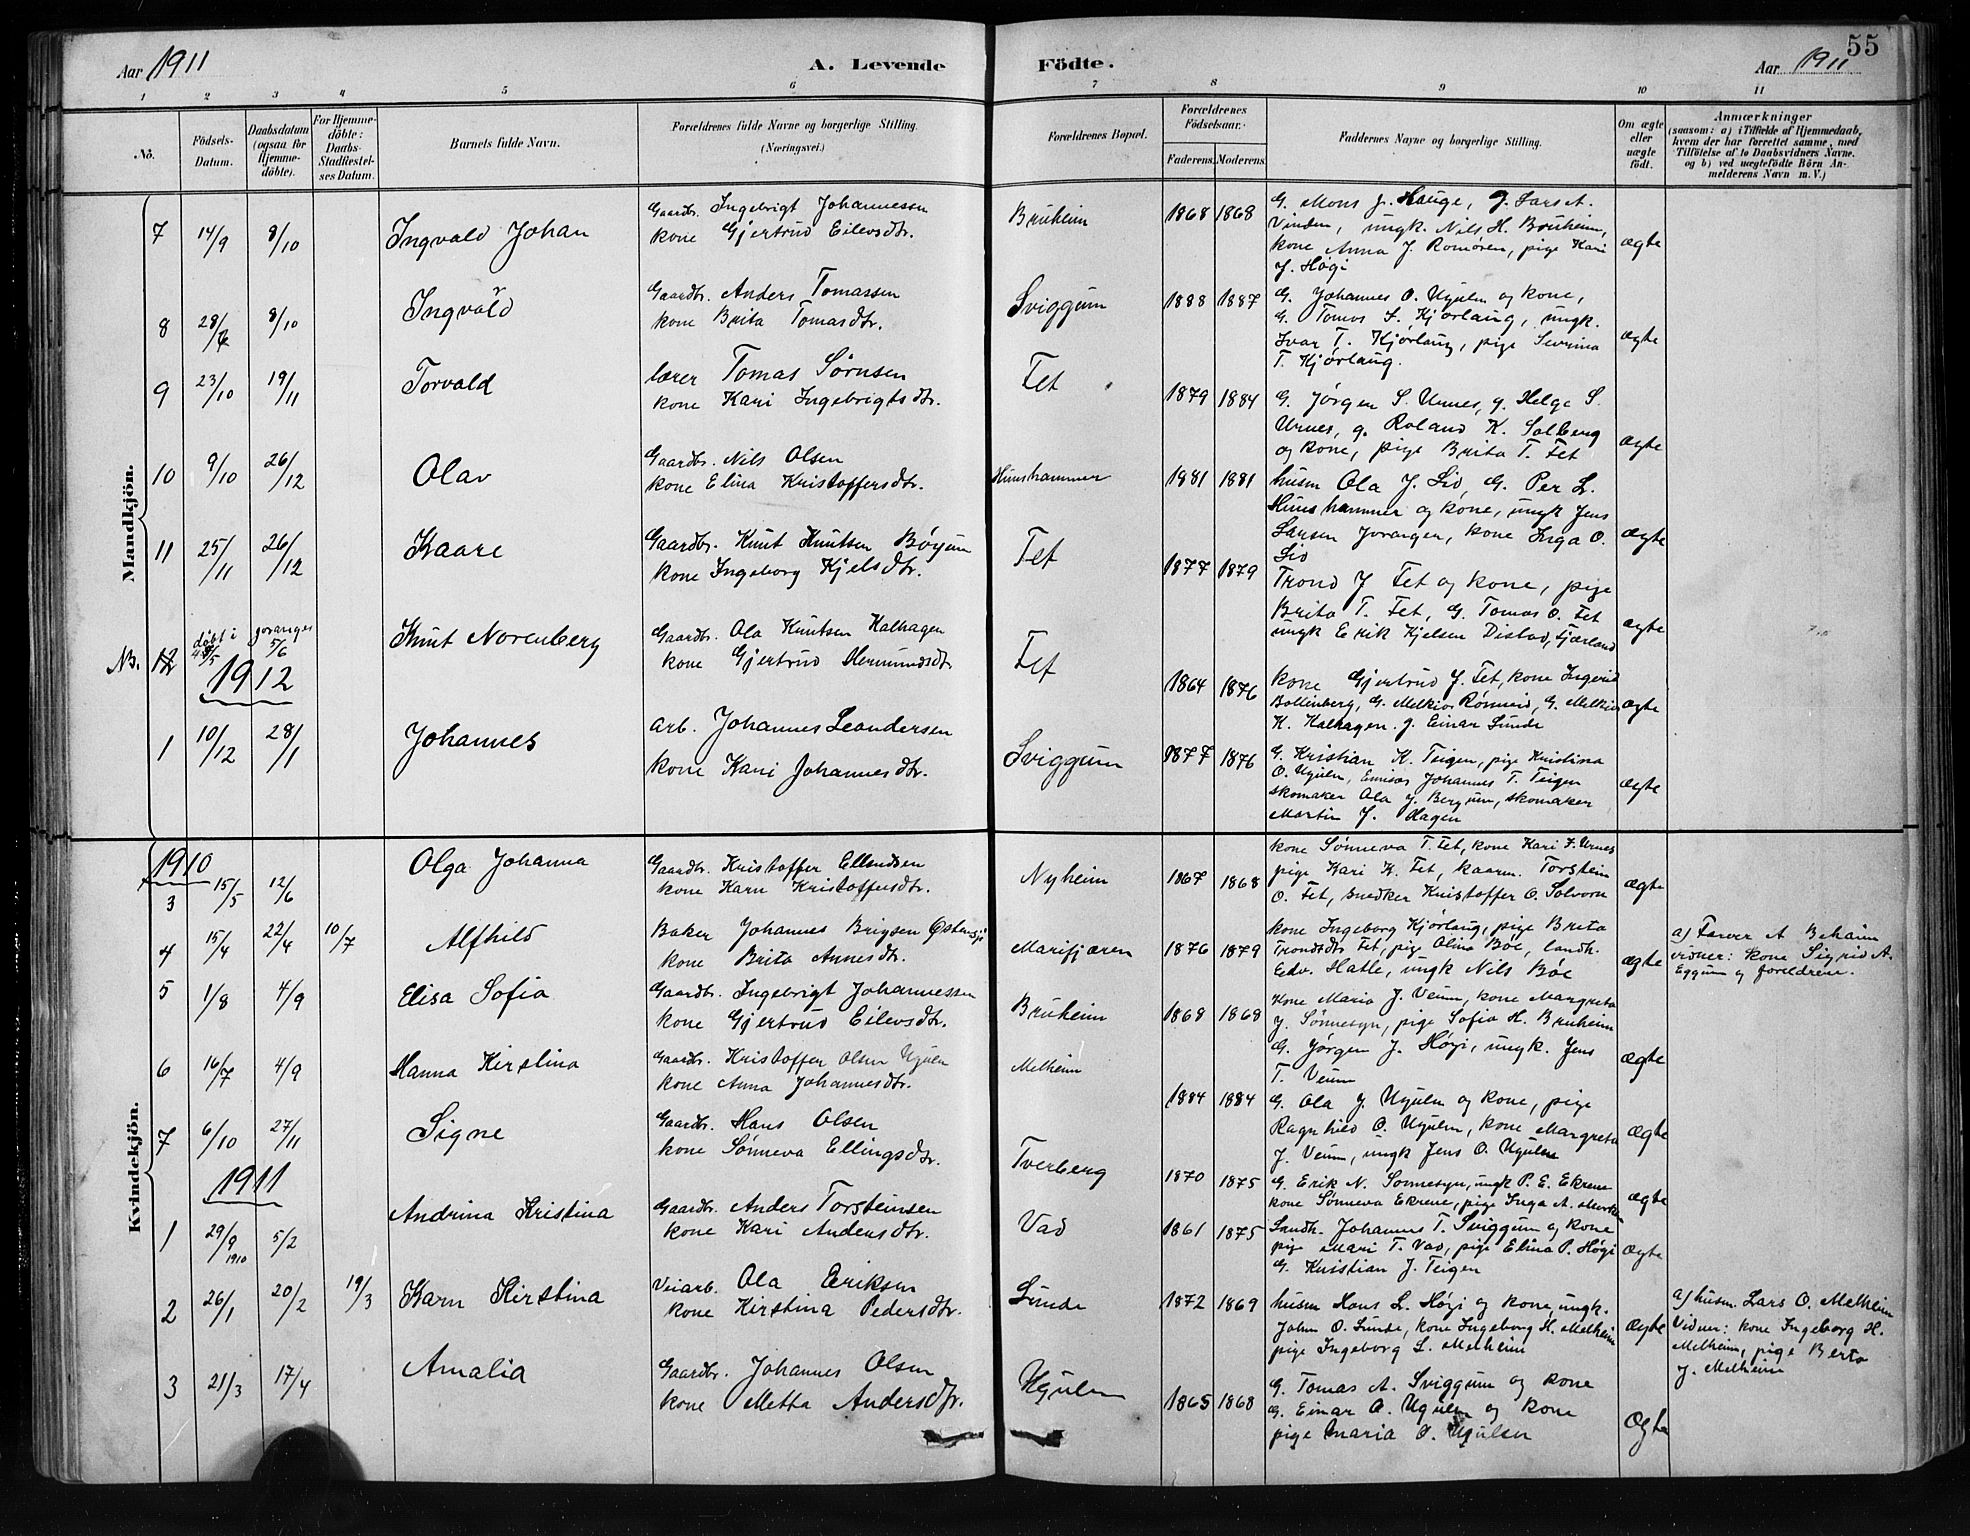 Aar 1911
A. Levende Födte.
Aar 1911
55
1 2 3 4 5 6 7 8 9 10 11
No.
Födsels-Datum.
Daabsdatum (ogsaa for Hjemme-döbte).
For Hjemme-döbte: Daabs-Stadfæstel-ses Datum.
Barnets fulde Navn.
Forældrenes fulde Navne og borgerlige Stilling. (Næringsvei.)
Forældrenes Bopæl.
Forældrenes Födselsaar.
Faderens. Moderens.
Faddernes Navne og borgerlige Stilling.
Om ægte eller uægte födt.
Anmærkninger
(saasom: a) i Tilfælde af Hjemmedaab,
hvem der har forrettet samme, med
Tilföielse af to Daabsvidners Navne.
og b) ved uægtefödte Börn An-
melderens Navn m. V.)
Mandkjön.
7 14/9 8/10 Ingvald Johan
Gaardbr. Ingebrigt Johannessen
kone Gjertrud Eilevsdtr.
Bruheim 1868 1868
G. Mons J. Hauge, J. Farset.
Vinden, ungk. Nils H. Bruheim,
kone Anna J. Romøren, pige Kari
J. Høgi
ægte
8 28/6 8/10 Ingvald
Gaardbr. Anders Tomassen
kone Brita Tomasdtr.
Sviggum 1888 1887
G. Johannes O. Ugulen og kone,
G. Tomas S. Kjørlaug, ungk.
Ivar T. Kjørlaug, pige Sevrina
T. Kjørlaug.
ægte
9 23/10 19/11 Torvald
lærer Tomas Sørnsen
kone Kari Ingebrigtsdtr.
Fet 1879 1884
G. Jørgen S. Urnes, g. Helge S.
Urnes, g. Roland K. Solberg
og kone, pige Brita T. Fet
ægte
10 9/10 26/12 Olav
Gaardbr. Nils Olsen
kone Elina Kristoffersdtr.
Hunshammer 1881 1881
husm Ola J. Lio, G. Per L.
Hunshammer og kone, ungk Jens
Larsen Joranger, kone Inga O.
Lio
ægte
11 25/11 26/12 Kaare
Gaardbr. Knut Knutsen Bøyum
kone Ingeborg Kjelsdtr.
Fet 1877 1879
Trond J Fet og kone, pige
Brita T. Fet, G. Tomas O. Fet
ungk Erik Kjelsen Distad, Fjærland
ægte
NB. 12 døbt i Joranger 5/6
Knut Norenberg
Gaardbr. Ola Knutsen Kalhagen
kone Gjertrud Hermundsdtr
Fet 1864 1876
kone Gjertrud J. Fet, kone Ingerid
Bollinberg, G. Melkior Rønneid, G. Melkior
K. Kalhagen. g. Einar Sunde
ægte
1912
1 10/12 28/1 Johannes
Arb. Johannes Leandersen
kone Kari Johannesdtr.
Sviggum 1877 1876
G. Kristian K. Teigen, pige Kristina
O. Ugulen, Emisær Johannes T. Teigen
skomaker Ola J. Bergum, skomaker
Martin J. Hagen
ægte
Kvindekjön.
1910
3 15/5 12/6 Olga Johanna
Gaardbr. Kristoffer Ellendsen
kone Kari Kristoffersdtr.
Nyheim 1867 1868
kone Sønneva T. Fet, kone Kari F. Urnes
pige Kari K. Fet, kaarm. Torstein
O. Fet, snedker Kristoffer O. Solvorn
ægte
4 15/4 22/4 10/7 Alfhild
Baker Johannes Brigsen Østensjø
kone Brita Annesdtr.
Marifjæren 1876 1879
kone Ingeborg Kjørlaug, pige Brita
Trondsdtr Fet, pige Olina Bøe, landh.
Edv. Hatle, ungk Nils Bøe
ægte
a) Farver A Beheim
vidner: kone Sigrid A.
Eggum og foreldrene.
5 1/8 4/9 Elisa Sofia
Gaardbr. Ingebrigt Johannessen
kone Gjertrud Eilevsdtr.
Bruheim 1868 1868
Kone Maria J. Veum, kone Margreta
J. Sønnesyn, pige Sofia H. Bruheim
G. Jørgen J. Høgi, ungk. Jens
T. Veum
ægte
6 16/7 4/9 Hanna Kirstina
Gaardbr. Kristoffer Olsen Ugulen
kone Anna Johannesdtr.
Melheim 1884 1884
G. Ola J. Ugulen og kone, pige
Ragnhild O. Ugulen, kone Margreta
J. Veum, ungk Jens O. Ugulen
ægte
7 6/10 27/11 Signe
Gaardbr. Hans Olsen
kone Sønneva Ellingsdtr.
Tverberg 1870 1875
G. Erik N. Sønnesyn, ungk P. E. Ekrene
kone Sønneva Ekrene, pige Inga A.
ægte
1911
1 29/9 1910 5/2 Andrina Kristina
Gaardbr. Anders Torsteinsen
kone Kari Andersdtr.
Vad 1861 1875
Landh. Johannes T. Sviggum og kone
pige Mari T. Vad, pige Elina P. Høgi
G. Kristian J. Teigen
ægte
2 26/1 20/2 19/3 Karn Kirstina
Veiarb. Ola Eriksen
kone Kirstina Pedersdtr.
Sunde 1872 1869
husm Hans L. Høgi og kone, ungk.
Johan O. Sunde, kone Ingeborg H. Melheim
pige Ingeborg L. Melheim
ægte
a) husm. Lars O. Melheim
Vidner: kone Ingeborg H.
Melheim, pige Berta
J. Melheim
3 21/3 17/4 Amalia
Gaardbr. Johannes Olsen
kone Metta Andersdtr.
Ugulen 1865 1868
G. Tomas A. Sviggum og kone
G. Einar O. Ugulen og kone
pige Maria O. Ugulen
ægte